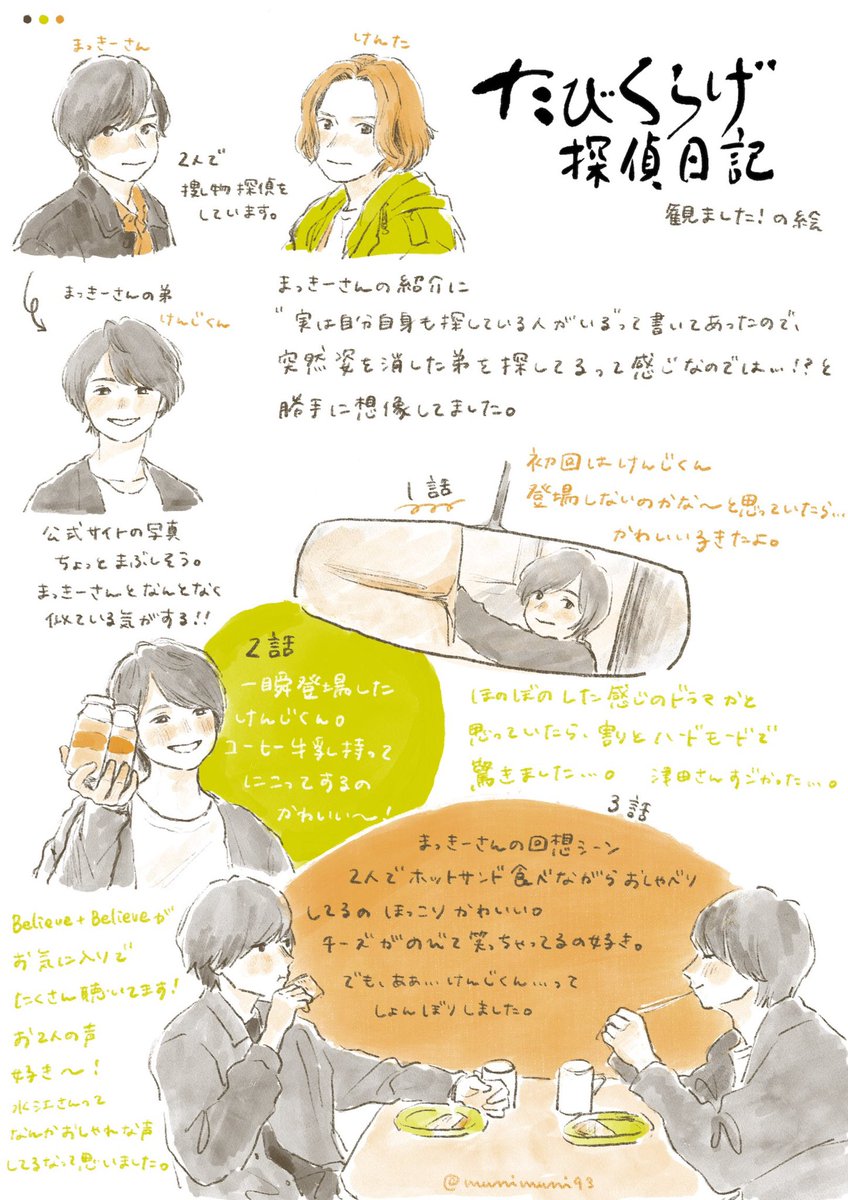 たびくらげ
探偵日記
観ました！の絵
まっきーさん
けんた
2人で
捜し物探偵を
しています。
まっきーさんの弟
けんじくん
まっきーさんの紹介に
“実は自分自身も探している人がいる”って書いてあったので、
突然姿を消した弟を探してるって感じなのでは…!?と
勝手に想像してました。
公式サイトの写真
ちょっとまぶしそう。
まっきーさんとなんとなく
似ている気がする!!
1話
初回はけんじくん
登場しないのかな〜と思っていたら…
かわいい子きたよ。
2話
一瞬登場した
けんじくん。
コーヒー牛乳持って
にこってするの
かわいい〜！
ほのぼのした感じのドラマかと
思っていたら、割とハードモードで
驚きました…。 津田さんすごかった…。
3話
まっきーさんの回想シーン
2人でホットサンド食べながらおしゃべり
してるの ほっこりかわいい。
チーズがのびて笑っちゃってるの好き。
でも、ああ…けんじくん…って
しょんぼりしました。
Believe+Believeが
お気に入りで
たくさん聴いてます！
お2人の声
好き〜！
水江さんって
なんかおしゃれな声
してるなって思いました。
@munimuni93